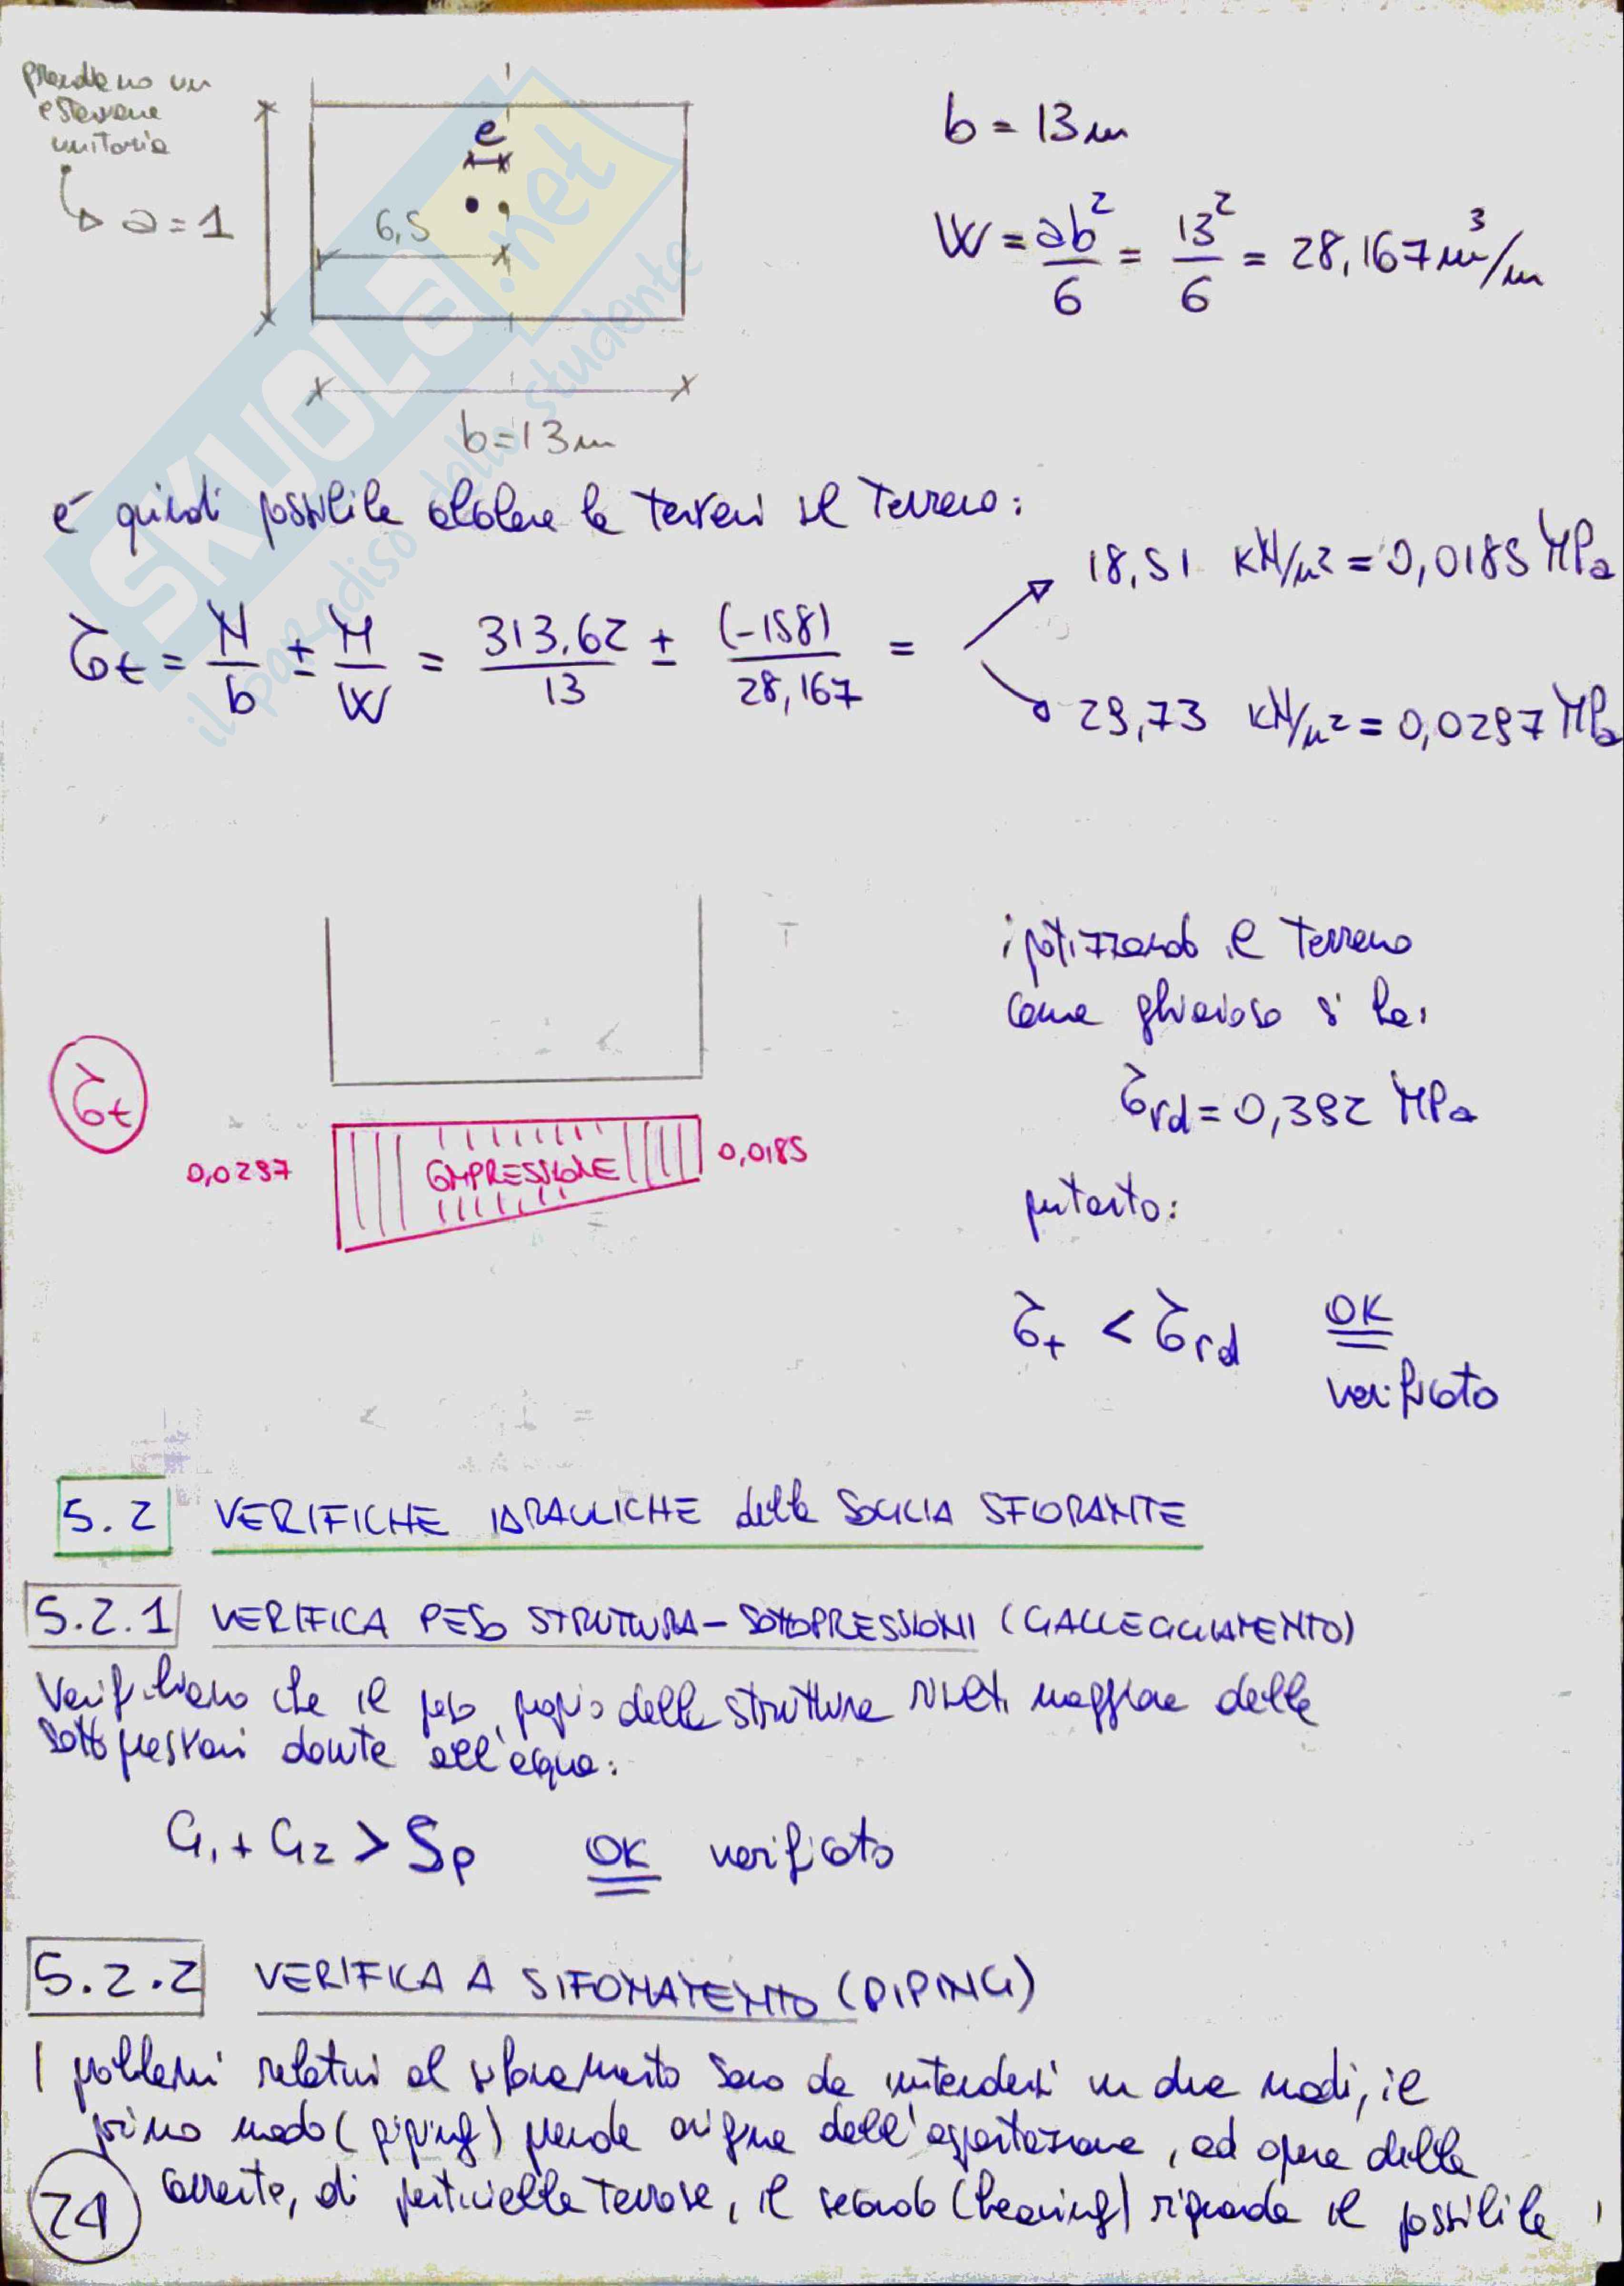 prendiamo un
estensione
unitaria
a = 1
e
6,5
b = 13 m
b = 13 m
W = ab² / 6 = 13² / 6 = 28,167 m³/m
SKUOLA.net
il paradiso dello studente
è quindi possibile calcolare le tensioni sul terreno:
σt = N/b ± M/W = 313,62/13 ± (-158)/28,167 =
18,51 kN/m² = 0,0185 MPa
29,73 kN/m² = 0,0297 MPa
ipotizzando il terreno
come ghiaioso si ha:
σrd = 0,392 MPa
pertanto:
σt < σrd OK
verificato
σt
0,0297
COMPRESSIONE
0,0185
5.2 VERIFICHE IDRAULICHE della SOGLIA SFIORANTE
5.2.1 VERIFICA PESO STRUTTURA - SOTTOPRESSIONI (GALLEGGIAMENTO)
Verifichiamo che il peso proprio della struttura risulti maggiore delle
sottopressioni dovute all'acqua:
G₁ + G₂ > Sp OK verificato
5.2.2 VERIFICA A SIFONAMENTO (PIPING)
I problemi relativi al sifonamento sono da intendersi in due modi, il
primo modo (piping) prende origine dall'asportazione, ad opera della
corrente, di particelle terrose, il secondo (heaving) riguarda il possibile
21